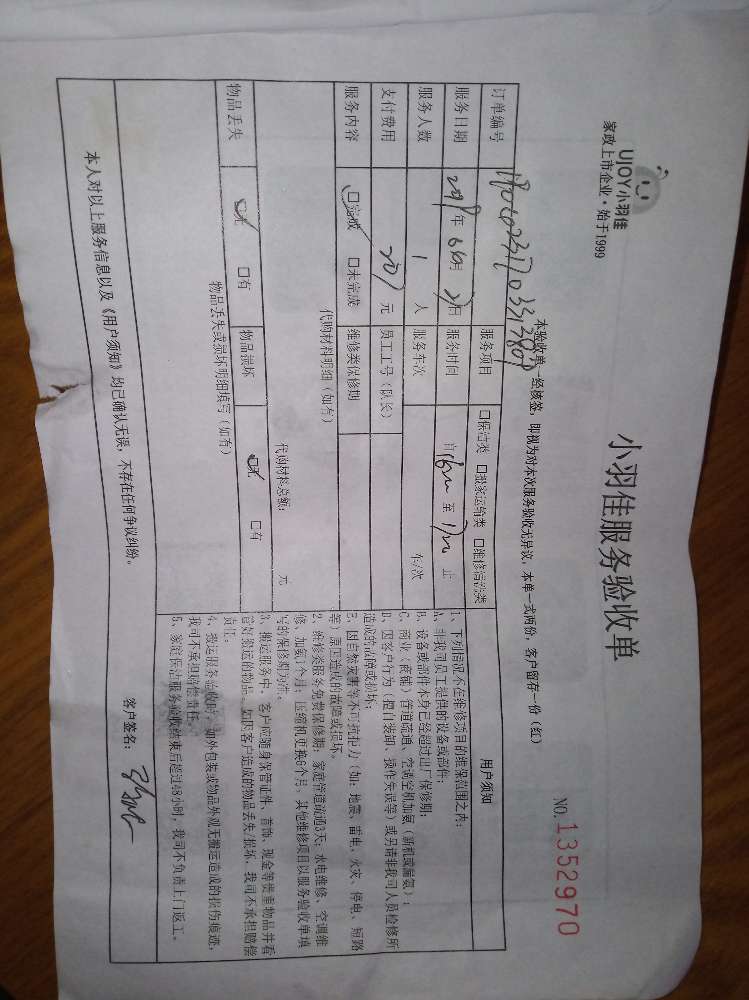 UJOY小羽佳
家政上市企业·始于1999
小羽佳服务验收单
NO. 1352970
本验收单一经核签，即视为对本次服务验收无异议，本单一式两份，客户留存一份（红）
订单编号
服务项目 □保洁类 □搬家运输类 □维修清洗类
服务日期 年 6月 日 服务时间 自 16 至 17 止
服务人数 1 人 服务车次 车/次
支付费用 207 元 员工工号（队长）
服务内容 □完成 □未完成 维修类保修期
代购材料明细（如有）
代购材料总额： 元
物品丢失 □无 □有 物品损坏 □无 □有
物品丢失或损坏明细填写（如有）
用户须知
1、下列情况不在维修项目的维保范围之内：
A、非我司员工提供的设备或部件；
B、设备或部件本身已经超过出厂保修期；
C、商业（商铺）管道疏通、空调空机加氨（新机或漏氨）；
D、因客户行为（擅自装卸、操作失误等）或另请非我司人员检修所
造成的故障或损坏；
E、因自然灾害等不可抗拒力（如：地震、雷电、火灾、停电、短路
等）原因造成的故障或损坏。
2、维修类服务免费保修期：家庭管道疏通3天，水电维修、空调维
修、加氨1个月，压缩机更换6个月，其他维修项目以服务验收单填
写的保修期为准。
3、搬运服务中，客户应随身保管证件、首饰、现金等贵重物品并看
管好搬运的物品。如因客户造成的物品丢失/损坏，我司不承担赔偿
责任。
4、搬运服务验收时，如外包装或物品外观无搬运造成的损伤痕迹，
我司不承担赔偿责任。
5、家庭保洁服务验收结束后超过48小时，我司不负责上门返工。
本人对以上服务信息以及《用户须知》均已确认无误，不存在任何争议纠纷。 客户签名：